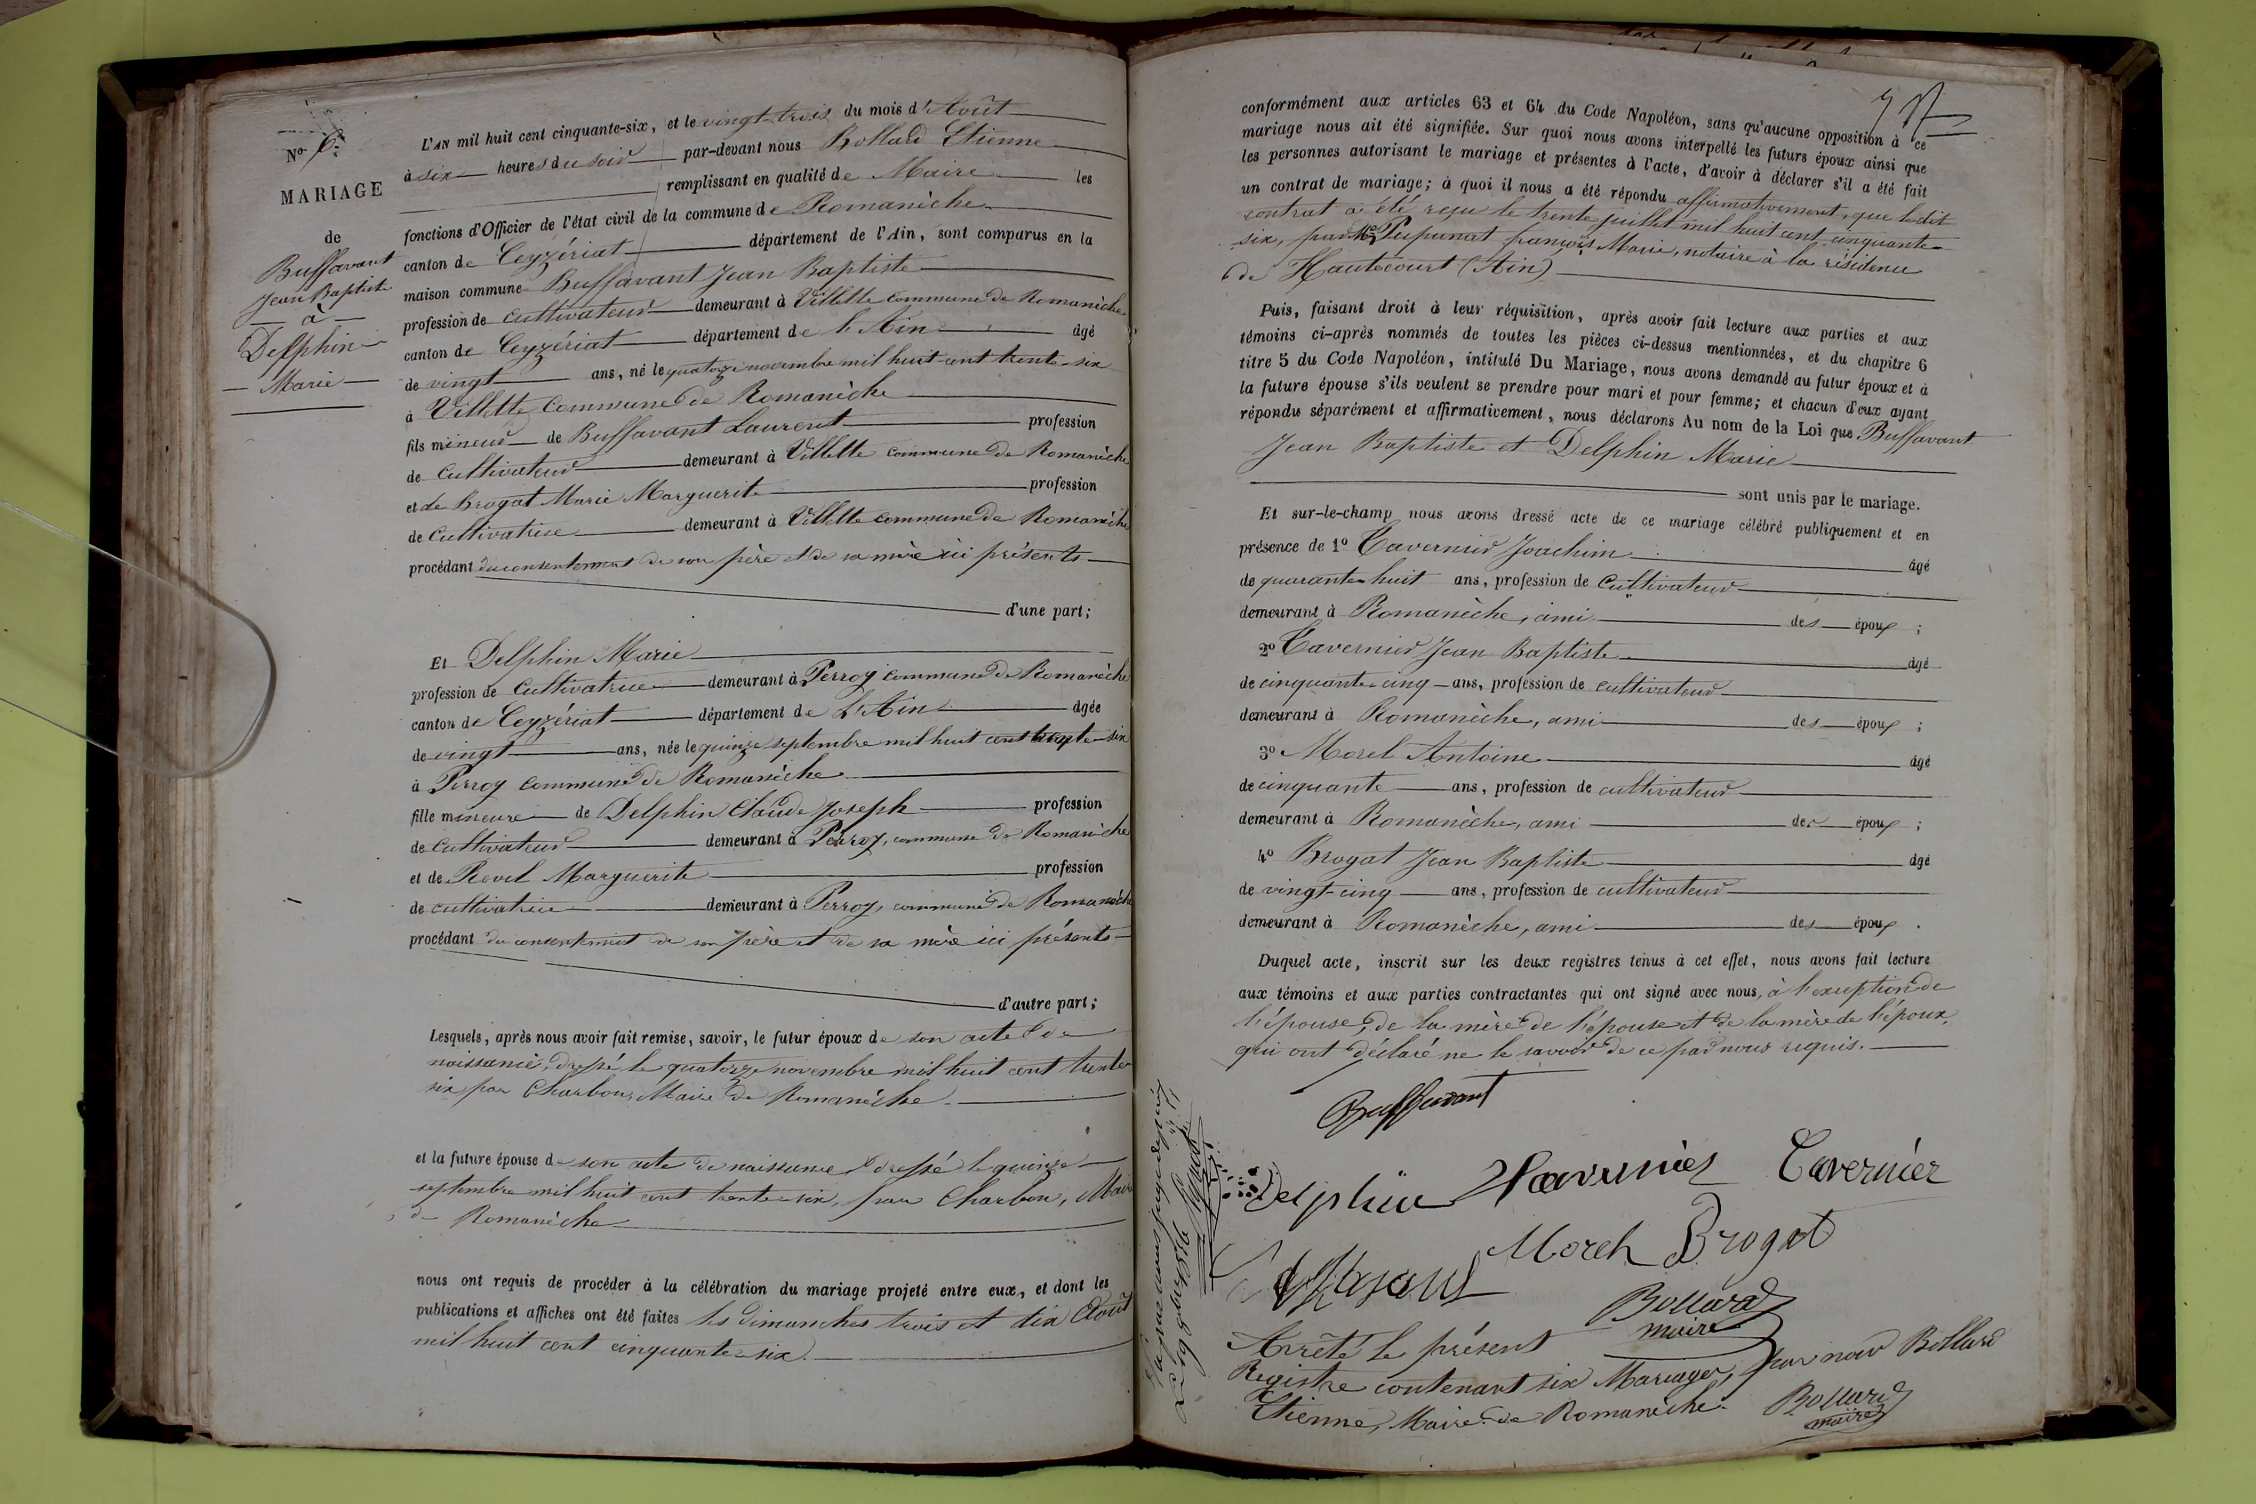 No 6.
MARIAGE
de
Buffavant
Jean Baptiste
à
Delphin
Marie
L'AN mil huit cent cinquante-six, et le vingt-trois du mois d'Août
à six heures du soir par-devant nous Bollard Etienne
remplissant en qualité de Maire les
fonctions d'Officier de l'état civil de la commune de Romanèche
canton de Ceyzériat département de l'Ain, sont comparus en la
maison commune Buffavant Jean Baptiste
profession de cultivateur demeurant à Villette commune de Romanèche
canton de Ceyzériat département de l'Ain âgé
de vingt ans, né le quatorze novembre mil huit cent trente-six
à Villette commune de Romanèche
fils mineur de Buffavant Laurent profession
de cultivateur demeurant à Villette commune de Romanèche
et de Brogat Marie Marguerite profession
de cultivatrice demeurant à Villette commune de Romanèche
procédant du consentement de son père et de sa mère ici présents
d'une part;
Et Delphin Marie
profession de cultivatrice demeurant à Perroy commune de Romanèche
canton de Ceyzériat département de L'Ain âgée
de vingt ans, née le quinze septembre mil huit cent trente-six
à Perroy commune de Romanèche
fille mineure de Delphin Claude Joseph profession
de cultivateur demeurant à Perroy, commune de Romanèche
et de Revel Marguerite profession
de cultivatrice demeurant à Perroy, commune de Romanèche
procédant du consentement de son père et de sa mère ici présents
d'autre part;
Lesquels, après nous avoir fait remise, savoir, le futur époux de son acte de
naissance, dressé le quatorze novembre mil huit cent trente
six par Charbon, Maire de Romanèche
et la future épouse de son acte de naissance dressé le quinze
septembre mil huit cent trente-six, par Charbon, Maire
de Romanèche
nous ont requis de procéder à la célébration du mariage projeté entre eux, et dont les
publications et affiches ont été faites les dimanches trois et dix Août
mil huit cent cinquante-six.
conformément aux articles 63 et 64 du Code Napoléon, sans qu'aucune opposition à ce
mariage nous ait été signifiée. Sur quoi nous avons interpellé les futurs époux ainsi que
les personnes autorisant le mariage et présentes à l'acte, d'avoir à déclarer s'il a été fait
un contrat de mariage; à quoi il nous a été répondu affirmativement, que le dit
contrat a été reçu le trente juillet mil huit cent cinquante-
six, par Me françois Marie, notaire à la résidence
de Hautecourt (Ain)
Puis, faisant droit à leur réquisition, après avoir fait lecture aux parties et aux
témoins ci-après nommés de toutes les pièces ci-dessus mentionnées, et du chapitre 6
titre 5 du Code Napoléon, intitulé Du Mariage, nous avons demandé au futur époux et à
la future épouse s'ils veulent se prendre pour mari et pour femme; et chacun d'eux ayant
répondu séparément et affirmativement, nous déclarons Au nom de la Loi que Buffavant
Jean Baptiste et Delphin Marie
sont unis par le mariage.
Et sur-le-champ nous avons dressé acte de ce mariage célébré publiquement et en
présence de 1º Tavernier Joachim âgé
de quarante-huit ans, profession de cultivateur
demeurant à Romanèche, ami des époux ;
2º Tavernier Jean Baptiste âgé
de cinquante-cinq ans, profession de cultivateur
demeurant à Romanèche, ami des époux ;
3º Morel Antoine âgé
de cinquante ans, profession de cultivateur
demeurant à Romanèche, ami des époux ;
4º Brogat Jean Baptiste âgé
de vingt-cinq ans, profession de cultivateur
demeurant à Romanèche, ami des époux .
Duquel acte, inscrit sur les deux registres tenus à cet effet, nous avons fait lecture
aux témoins et aux parties contractantes qui ont signé avec nous, à l'exception de
l'épouse, de la mère de l'épouse et de la mère de l'époux,
qui ont déclaré ne le savoir de ce par nous requis.
Buffavant
Delphin Tavernier Tavernier
Morel Brogat
Bollard
maire
Arrêté le présent
Registre contenant six Mariages, par nous Bollard
Etienne, Maire de Romanèche.
Bollard
maire